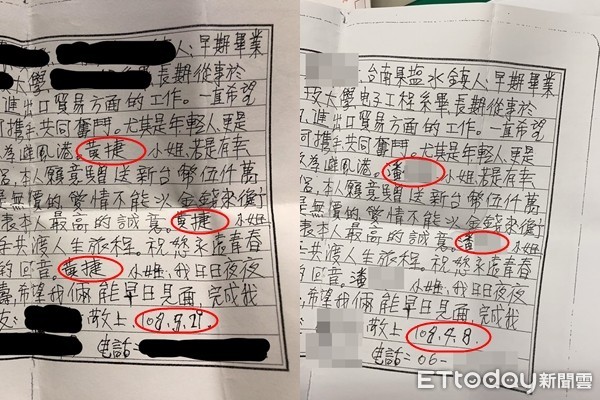 人:早期畢業
大學 長期從事於
進出口貿易方面的工作。一直希望
可攜手共同奮鬥。尤其是年輕人更是
為避風港。黃捷 小姐,若是有幸
侶,本人願意贈送新台幣伍仟萬
是無價的,愛情不能以金錢來衡
表本人最高的誠意。黃捷 小姐
共渡人生旅程。祝您永遠青春
的回音。黃捷 小姐,我日日夜夜
,希望我倆能早日見面,完成我
敬上.108.9.29.
電話=
台南縣鹽水鎮人:早期畢業
大學電子工程系畢長期從事於
進出口貿易方面的工作。一直希望
可攜手共同奮鬥。尤其是年輕人更是
為避風港。潘 小姐,若是有幸
侶,本人願意贈送新台幣伍仟萬
是無價的,愛情不能以金錢來衡
表本人最高的誠意。潘 小姐
共渡人生旅程。祝您永遠青春
回音。潘 小姐,我日日夜夜
,希望我倆能早日見面,完成我
敬上.108.4.8.
電話=06-
ETtoday新聞雲